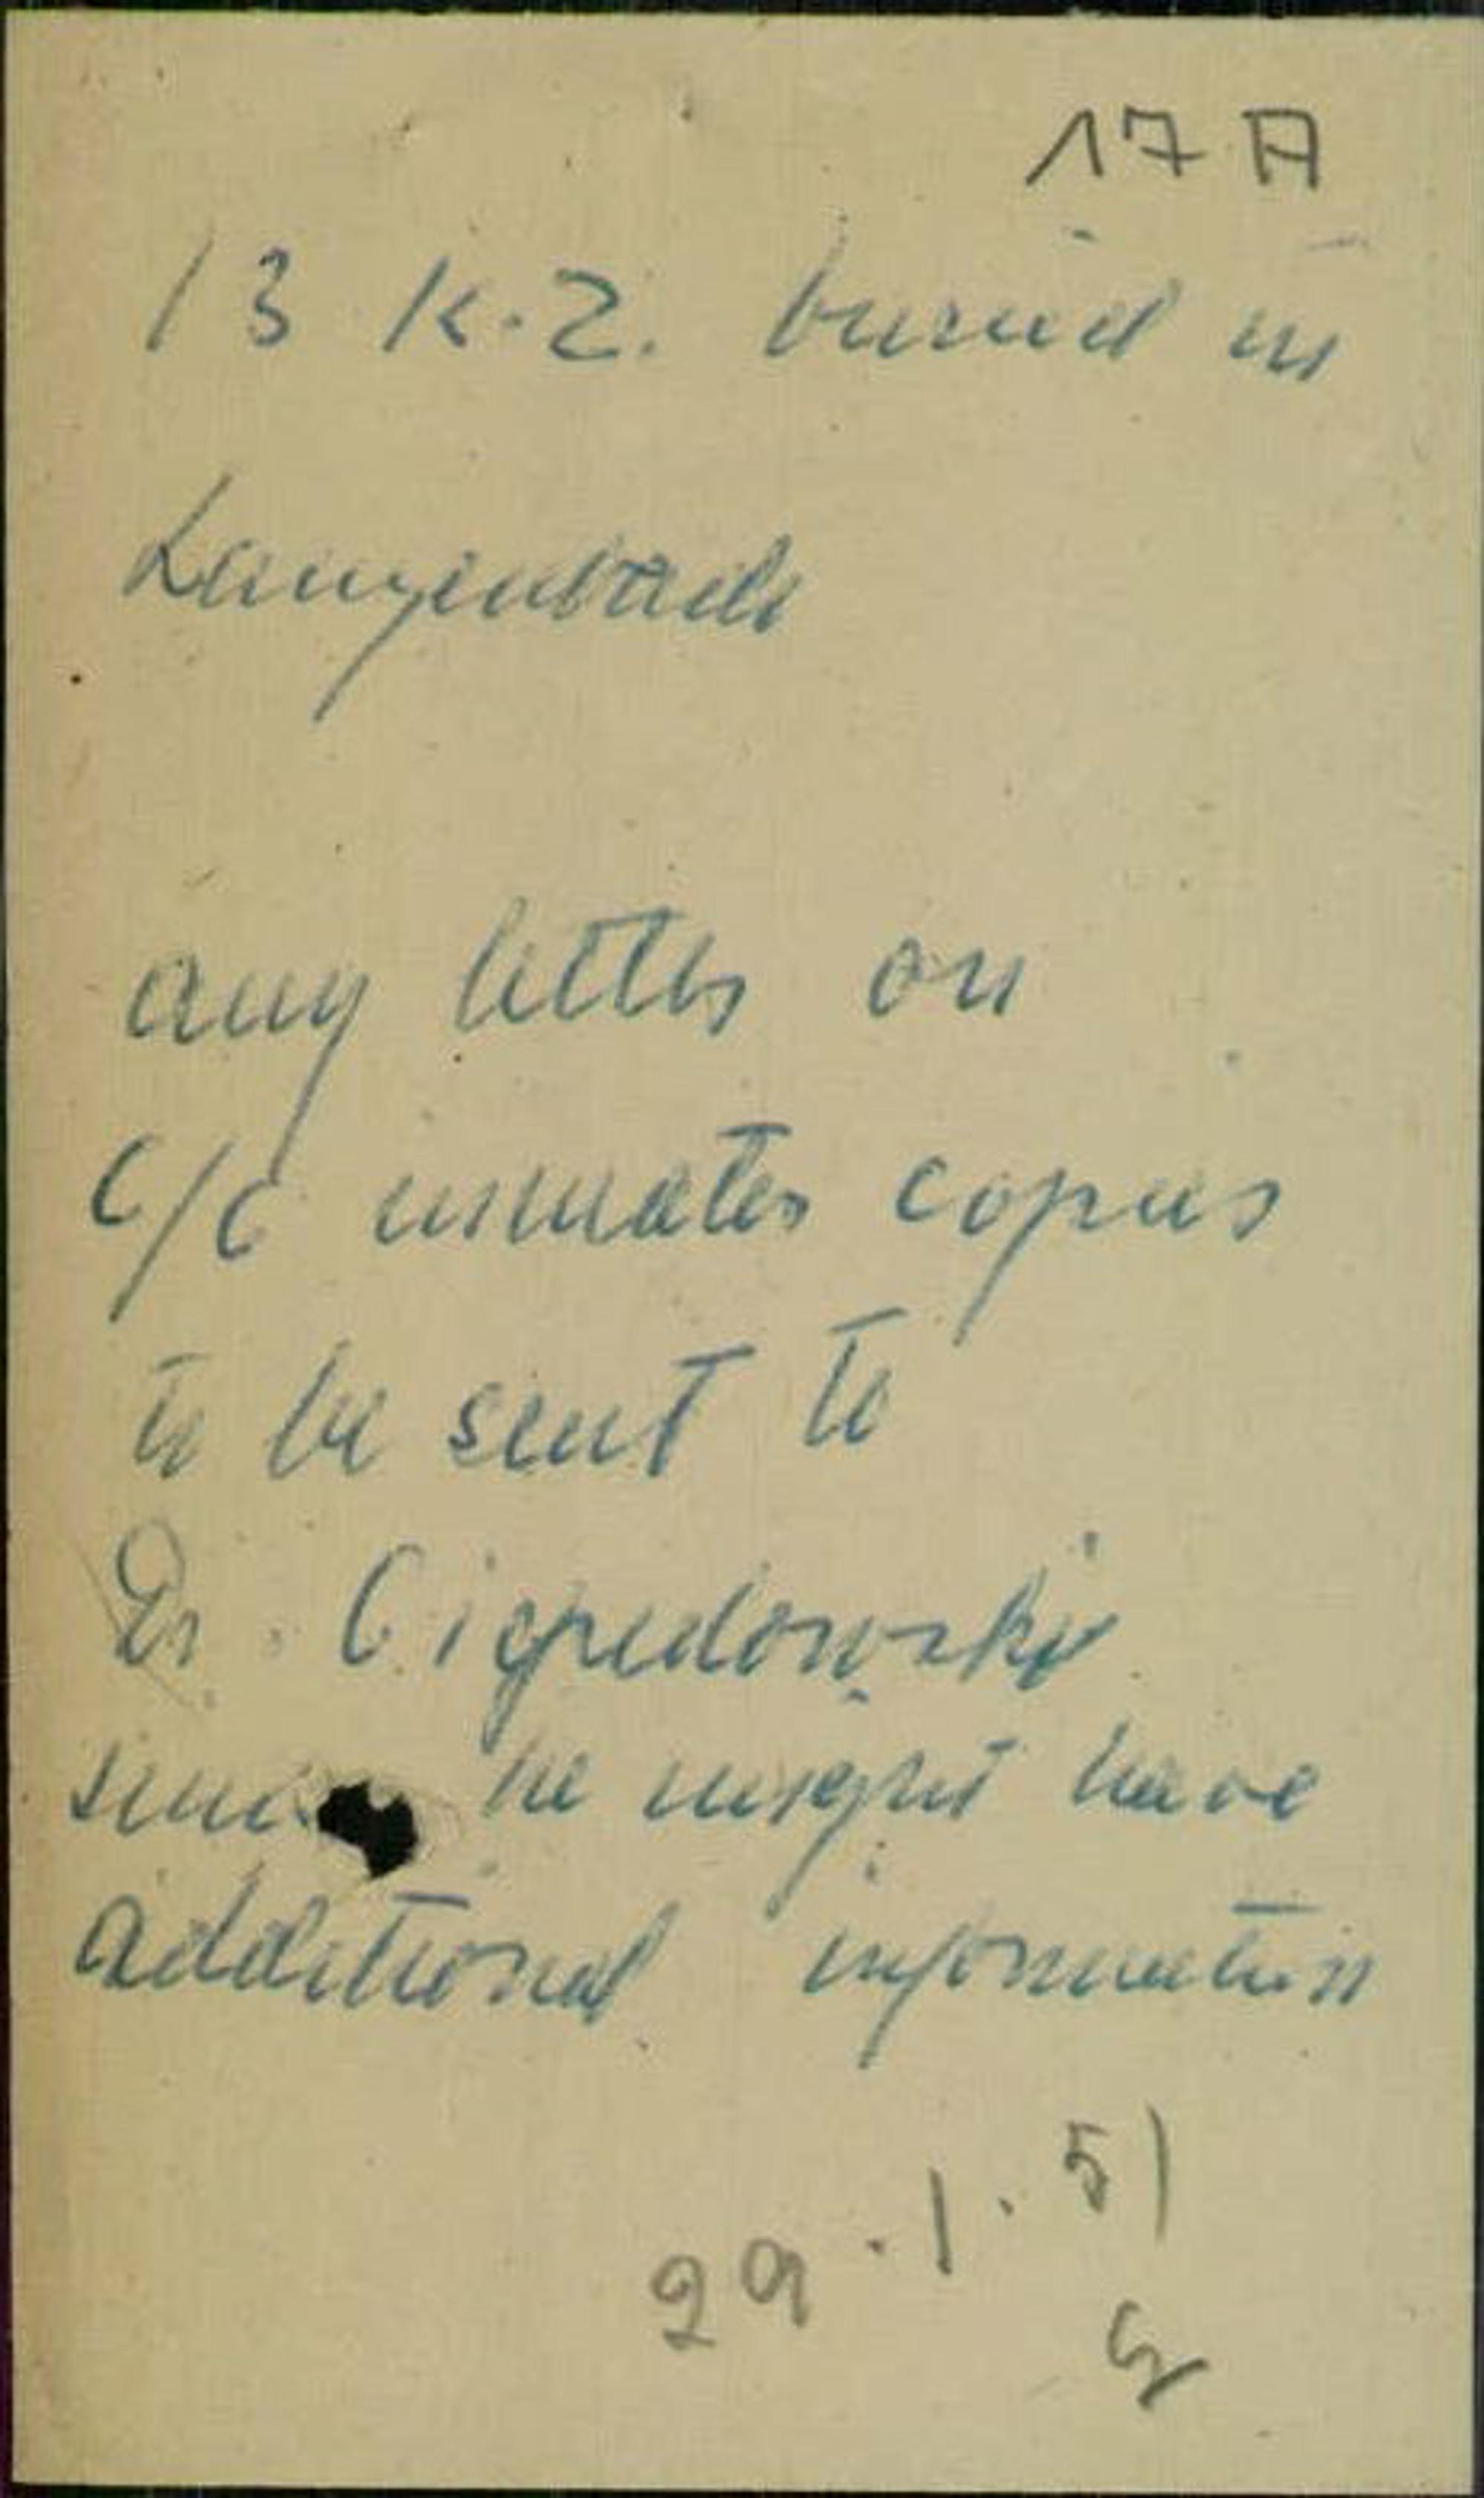 17 A
13 K.Z. buried in
Langenbach
any letters on
C/C inmates copies
to be sent to
Dr.
since he might have
additional information
29.1.51